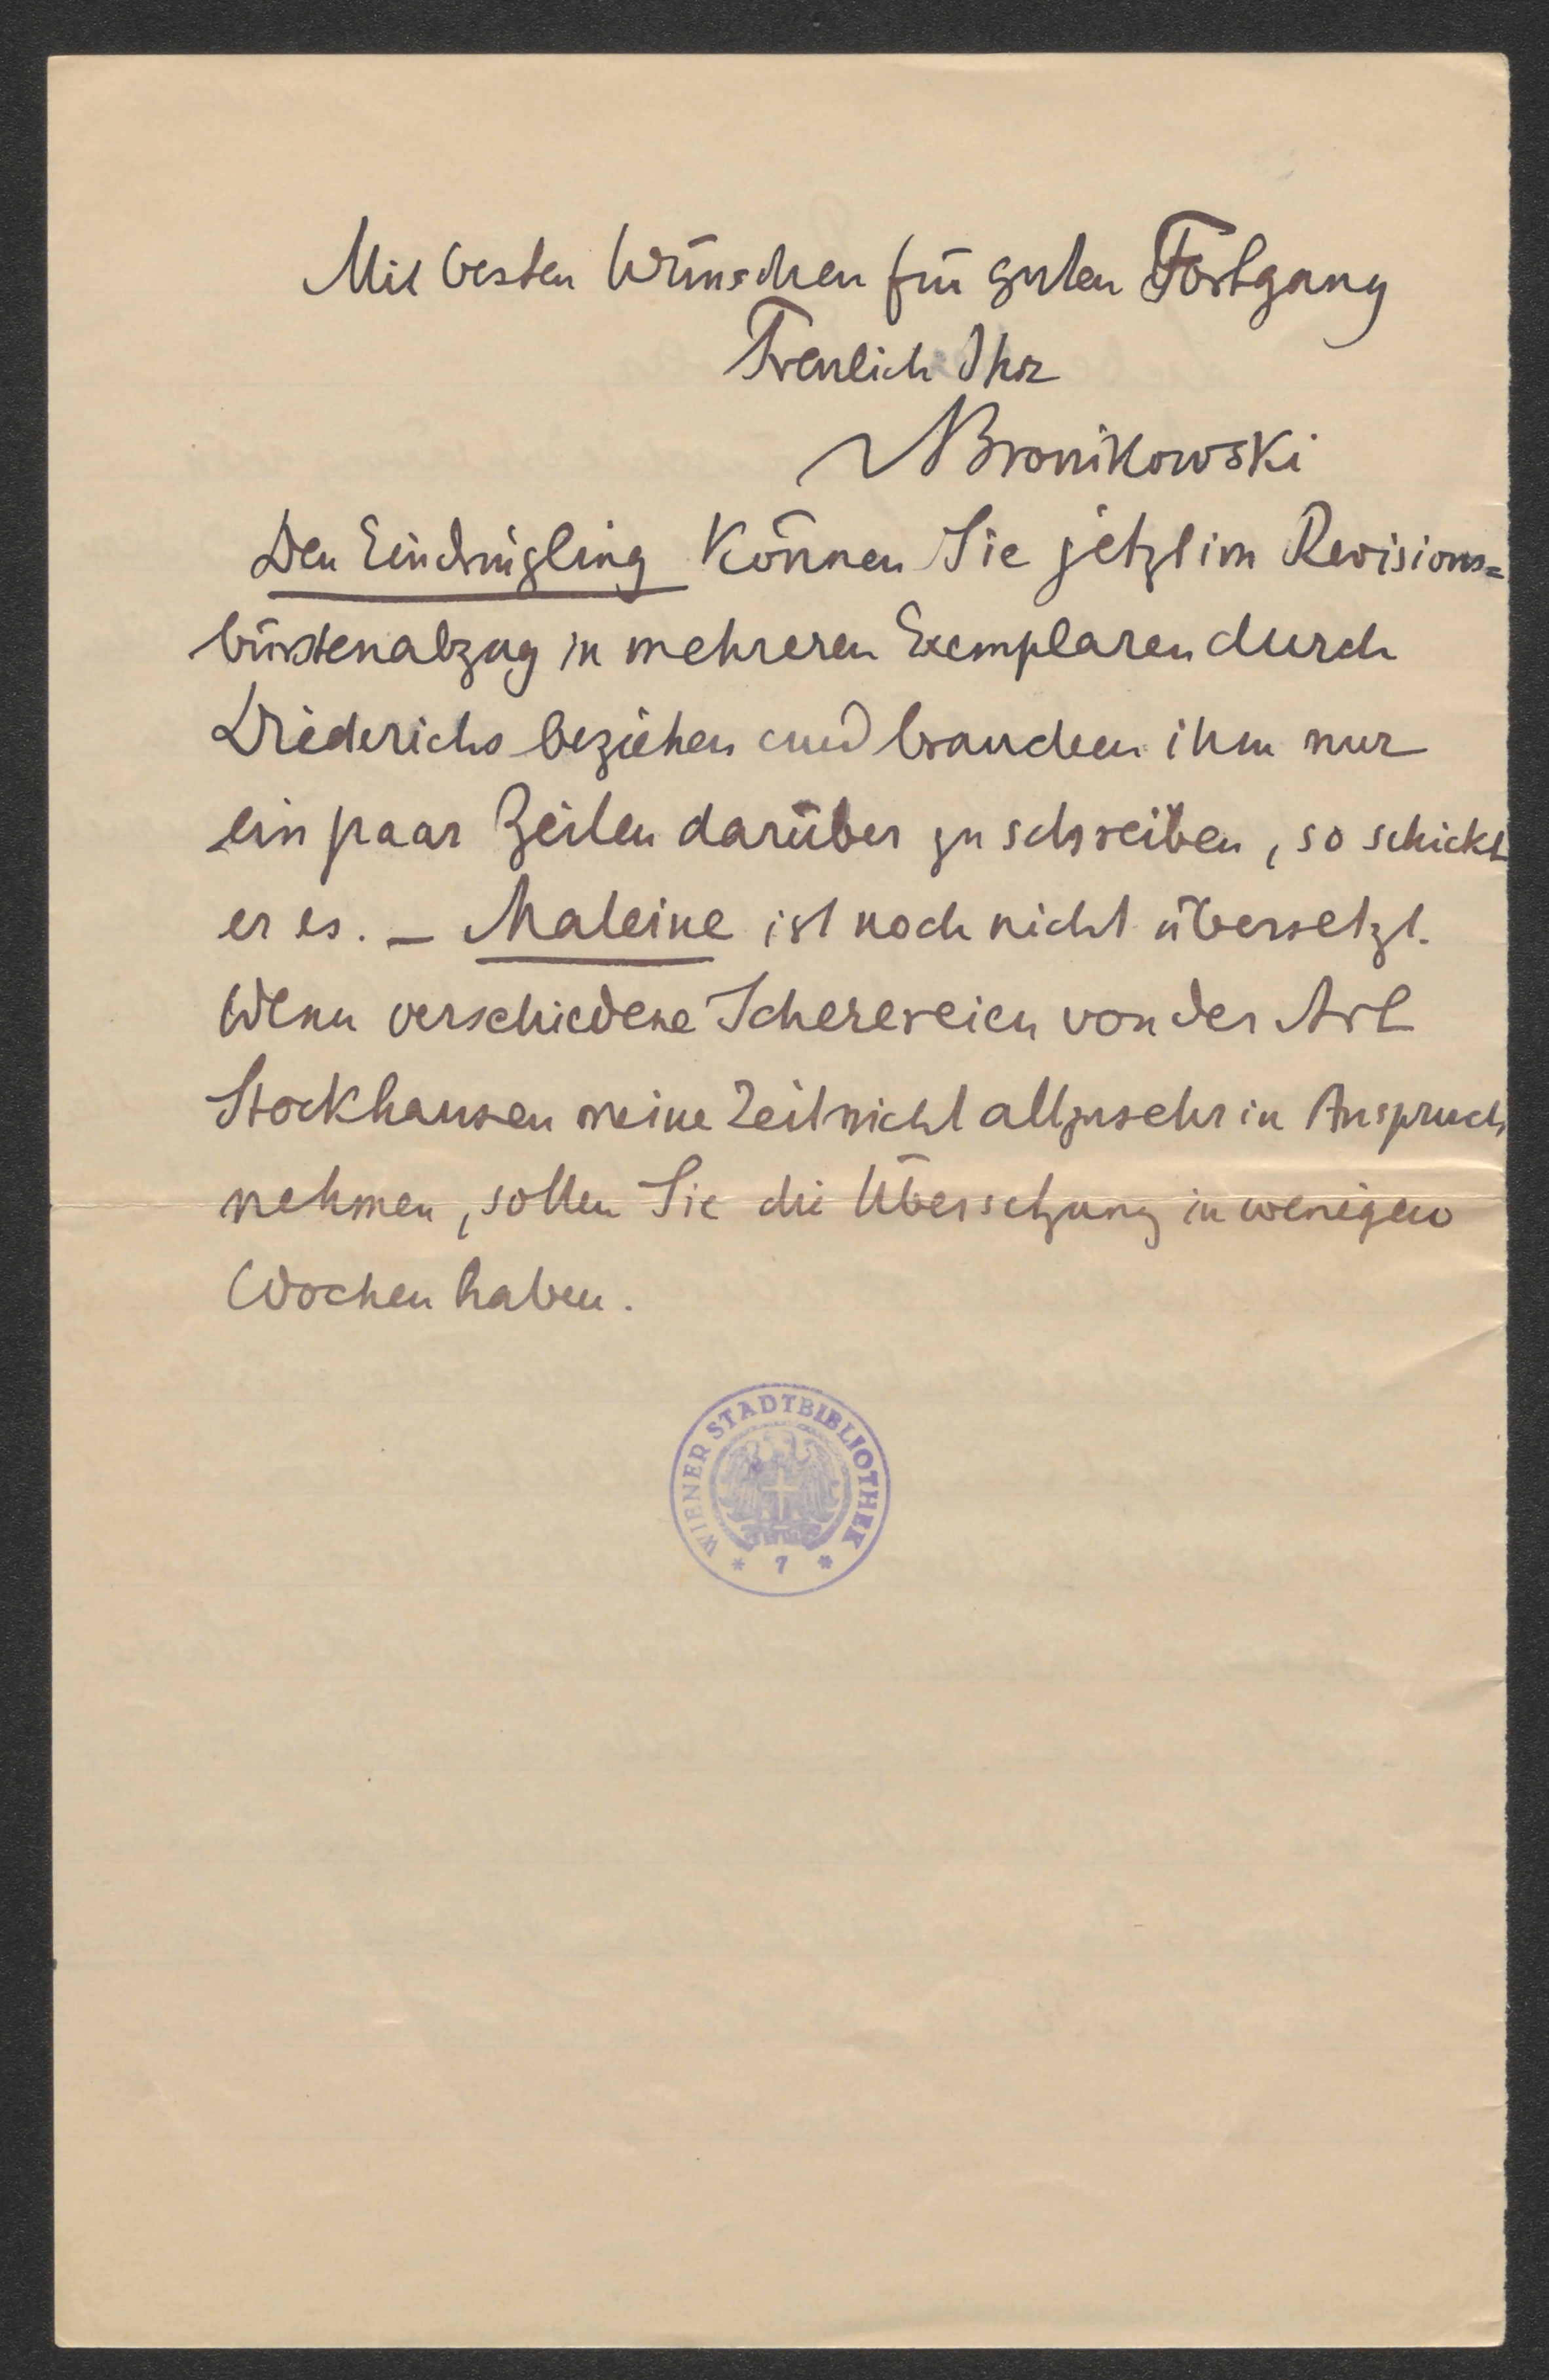 Mit besten Wünschen für guten Fortgang
Treulich Ihr
Bronikowski
Den Eindringling können Sie jetzt im Revisions=
bürstenabzug in mehreren Exemplaren durch
Diederichs beziehen und brauchen ihm nur
ein paar Zeilen darüber zu schreiben, so schickt
er es. – Maleine ist noch nicht übersetzt.
Wenn verschiedene Scherereien von der Art
Stockhausen meine Zeit nicht allzusehr in Anspruch
nehmen, sollen Sie die Übersetzung in wenigen
Wochen haben.
WIENER STADTBIBLIOTHEK
* 7 *